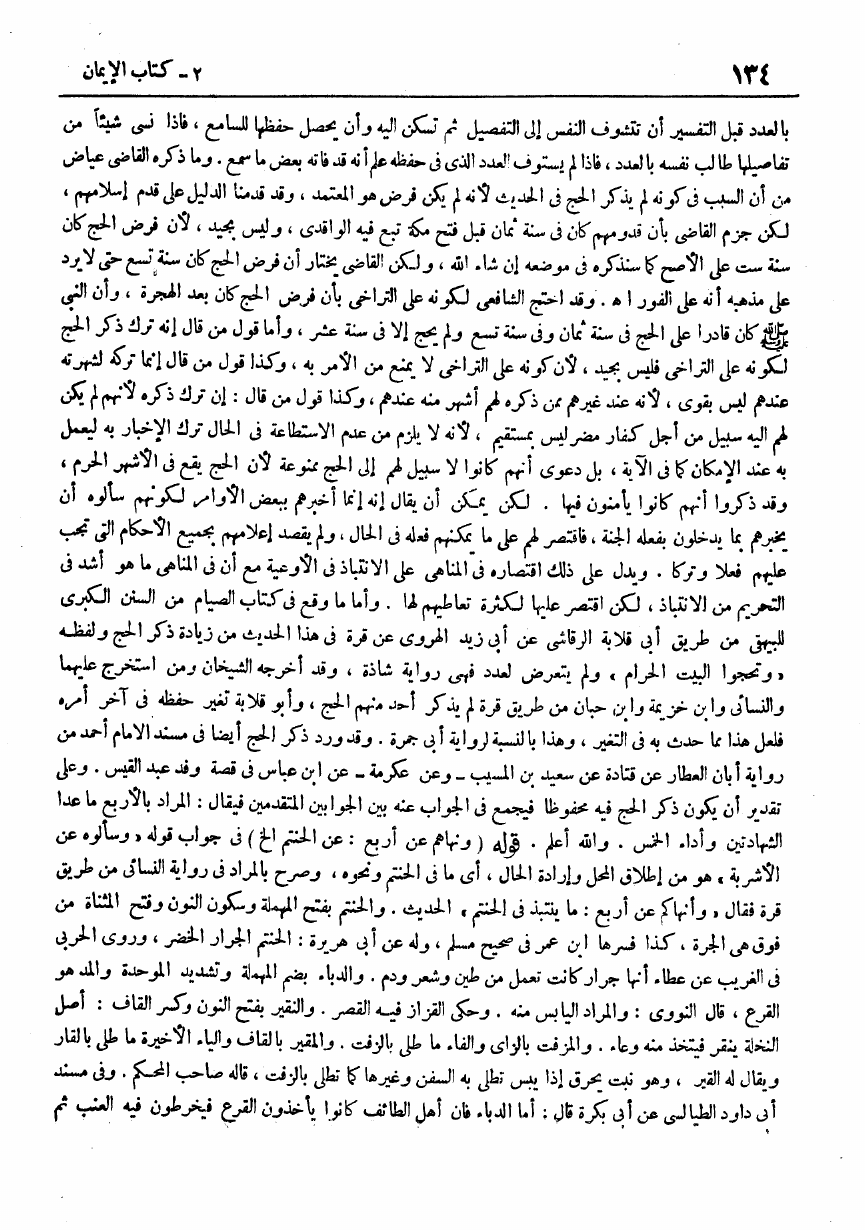 ١٣٤
٢ - كتاب الإيمان
بالعدد قبل التفسير أن تتشوف النفس إلى التفصيل ثم تسكن اليه وأن يحصل حفظها للسامع ، فاذا نسى شيئاً من
تفاصيلها طالب نفسه بالعدد ، فاذا لم يستوف العدد الذى فى حفظه علم أنه قد فاته بعض ما سمع . وما ذكره القاضى عياض
من أن السبب فى كونه لم يذكر الحج فى الحديث لأنه لم يكن فرض هو المعتمد ، وقد قدمنا الدليل على قدم إسلامهم ،
لكن جزم القاضى بأن قدومهم كان فى سنة ثمان قبل فتح مكة تبع فيه الواقدى ، وليس بجيد ، لأن فرض الحج كان
سنة ست على الأصح كما سنذكره فى موضعه إن شاء الله ، ولكن القاضى يختار أن فرض الحج كان سنة تسع حتى لا يرد
على مذهبه أنه على الفور اه . وقد احتج الشافعى لكونه على التراخى بأن فرض الحج كان بعد الهجرة ، وأن النبى
ﷺ كان قادرا على الحج فى سنة ثمان وفى سنة تسع ولم يحج إلا فى سنة عشر ، وأما قول من قال إنه ترك ذكر الحج
لكونه على التراخى فليس بجيد ، لأن كونه على التراخى لا يمنع من الأمر به ، وكذا قول من قال إنما تركه لشهرته
عندهم ليس بقوى ، لأنه عند غيرهم ممن ذكره لهم أشهر منه عندهم ، وكذا قول من قال : إن ترك ذكره لأنهم لم يكن
لهم اليه سبيل من أجل كفار مضر ليس بمستقيم ، لأنه لا يلزم من عدم الاستطاعة فى الحال ترك الإخبار به ليعمل
به عند الإمكان كما فى الآية ، بل دعوى أنهم كانوا لا سبيل لهم إلى الحج ممنوعة لأن الحج يقع فى الأشهر الحرم ،
وقد ذكروا أنهم كانوا يأمنون فيها . لكن يمكن أن يقال إنه إنما أخبرهم ببعض الأوامر لكونهم سألوه أن
يخبرهم بما يدخلون بفعله الجنة ، فاقتصر لهم على ما يمكنهم فعله فى الحال ، ولم يقصد إعلامهم بجميع الأحكام التى تجب
عليهم فعلا وتركا . ويدل على ذلك اقتصاره فى المناهى على الانتباذ فى الأوعية مع أن فى المناهى ما هو أشد فى
التحريم من الانتباذ ، لكن اقتصر عليها لكثرة تعاطيهم لها . وأما ما وقع فى كتاب الصيام من السنن الكبرى
للبيهق من طريق أبى قلابة الرقاشى عن أبى زيد الهروى عن قرة فى هذا الحديث من زيادة ذكر الحج ولفظه
« وتحجوا البيت الحرام » ولم يتعرض لعدد فهى رواية شاذة ، وقد أخرجه الشيخان ومن استخرج عليهما
والنسائى وابن خزيمة وابن حبان من طريق قرة لم يذكر أحد منهم الحج ، وأبو قلابة تغير حفظه فى آخر أمره
فلعل هذا مما حدث به فى التغير ، وهذا بالنسبة لرواية أبى جمرة . وقد ورد ذكر الحج أيضا فى مسند الامام أحمد من
رواية أبان العطار عن قتادة عن سعيد بن المسيب - وعن عكرمة - عن ابن عباس فى قصة وفد عبد القيس . وعلى
تقدير أن يكون ذكر الحج فيه محفوظا فيجمع فى الجواب عنه بين الجوابين المتقدمين فيقال : المراد بالأربع ما عدا
الشهادتين وأداء الخمس . والله أعلم . قوله ( ونهاهم عن أربع : عن الحنتم الخ ) فى جواب قوله « وسألوه عن
الأشربة » هو من إطلاق المحل وإرادة الحال ، أى ما فى الحنتم ونحوه ، وصرح بالمراد فى رواية النسائى من طريق
قرة فقال « وأنهاكم عن أربع : ما ينتبذ فى الحنتم » الحديث . والحنتم بفتح المهملة وسكون النون وفتح المثناة من
فوق هى الجرة ، كذا فسرها ابن عمر فى صحيح مسلم ، وله عن أبى هريرة : الحنتم الجرار الخضر ، وروى الحربى
فى الغريب عن عطاء أنها جرار كانت تعمل من طين وشعر ودم . والدباء بضم المهملة وتشديد الموحدة والمد هو
القرع ، قال النووى : والمراد اليابس منه . وحكى القزاز فيه القصر . والنقير بفتح النون وكسر القاف : أصل
النخلة ينقر فيتخذ منه وعاء . والمزفت بالزاى والفاء ما طلى بالزفت . والمقير بالقاف والياء الأخيرة ما طلى بالقار
ويقال له القير ، وهو نبت يحرق إذا يبس تطلى به السفن وغيرها كما تطلى بالزفت ، قاله صاحب المحكم . وفى مسند
أبى داود الطيالسى عن أبى بكرة قال : أما الدباء فان أهل الطائف كانوا يأخذون القرع فيخرطون فيه العنب ثم